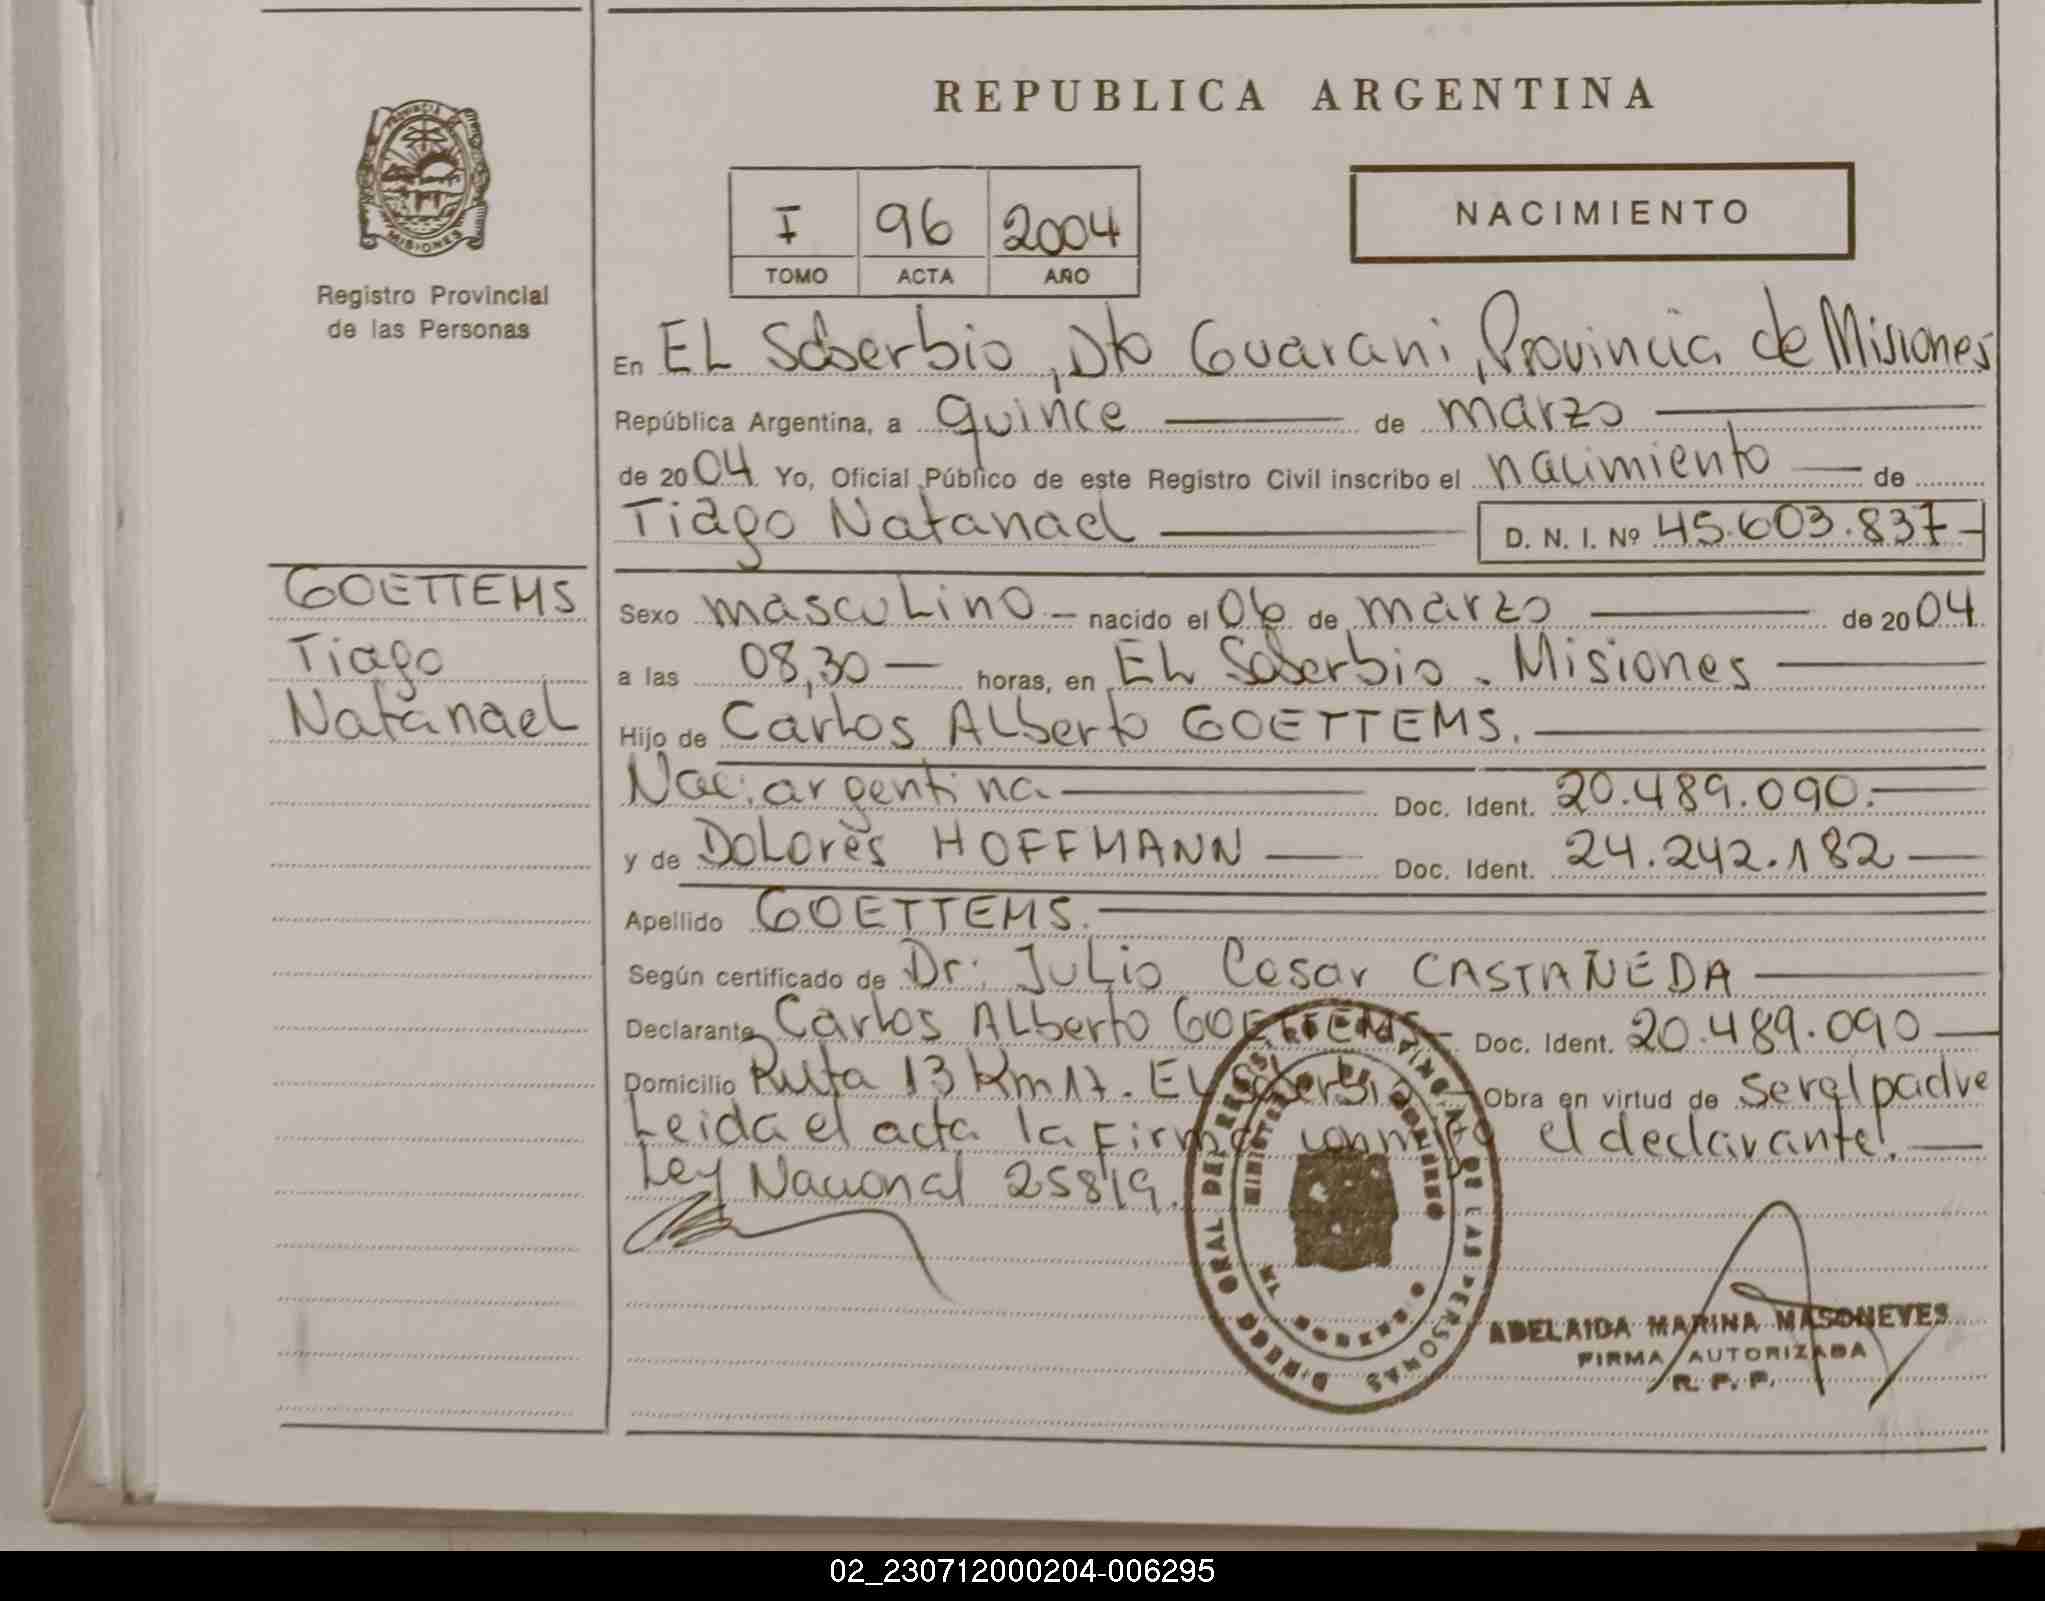 REPUBLICA ARGENTINA
PROVINCIA DE
MISIONES
Registro Provincial
de las Personas
I 96 2004
TOMO ACTA AÑO
NACIMIENTO
En EL Soberbio, Dto Guarani, Provincia de Misiones
República Argentina, a quince de marzo
de 2004 Yo, Oficial Público de este Registro Civil inscribo el nacimiento de
Tiago Natanael D. N. I. Nº 45.603.837-
GOETTEMS
Tiago
Natanael
Sexo masculino nacido el 06 de marzo de 2004
a las 08,30 horas, en EL Soberbio. Misiones
Hijo de Carlos ALberto GOETTEMS.
Nac: argentina Doc. Ident. 20.489.090.
y de DoLores HOFFMANN Doc. Ident. 24.242.182
Apellido GOETTEMS.
Según certificado de Dr: JuLio Cesar CASTAÑEDA
Declarante Carlos ALberto GOETTEMS Doc. Ident. 20.489.090
Domicilio Ruta 13 Km 17. EL Soberbio Obra en virtud de ser el padre
Leida el acta la firma conmigo el declarante.
Ley Nacional 25819.
DIRECC GRAL DEL REGISTRO PROVINCIAL DE LAS PERSONAS
ADELAIDA MARINA MASONEVES
FIRMA AUTORIZADA
R. P. P.
02_230712000204-006295